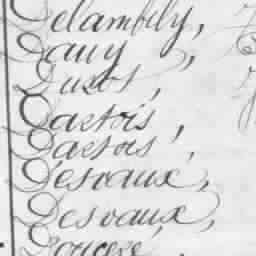 Delambily,
Dauy,
Duzos,
Dartois,
Dartois,
Desvaux,
Desvaux,